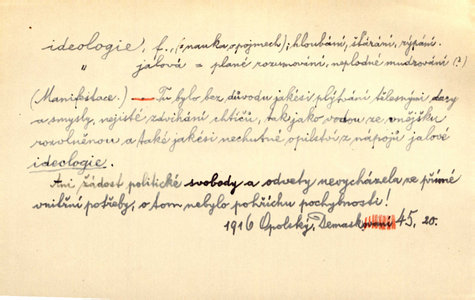 ideologie, f., (= nauka o pojmech); hloubání, štárání, rýpání.
" jalová = plané rozumování, neplodné mudrování (?)
(Manifestace.) — Tu bylo bez důvodu jakési plýtvání tělesnými dary
a smysly, nejisté zdvíhání chtíčů, tak jako vodou ze vnějšku
rozvlněnou a také jakési nechutné opilství z nápojů jalové
ideologie.
Ani žádost politické svobody a odvety nevycházela ze přímé
vnitřní potřeby, o tom nebylo pohříchu pochybnosti!
1916 Opolský, Demask 45, 20.